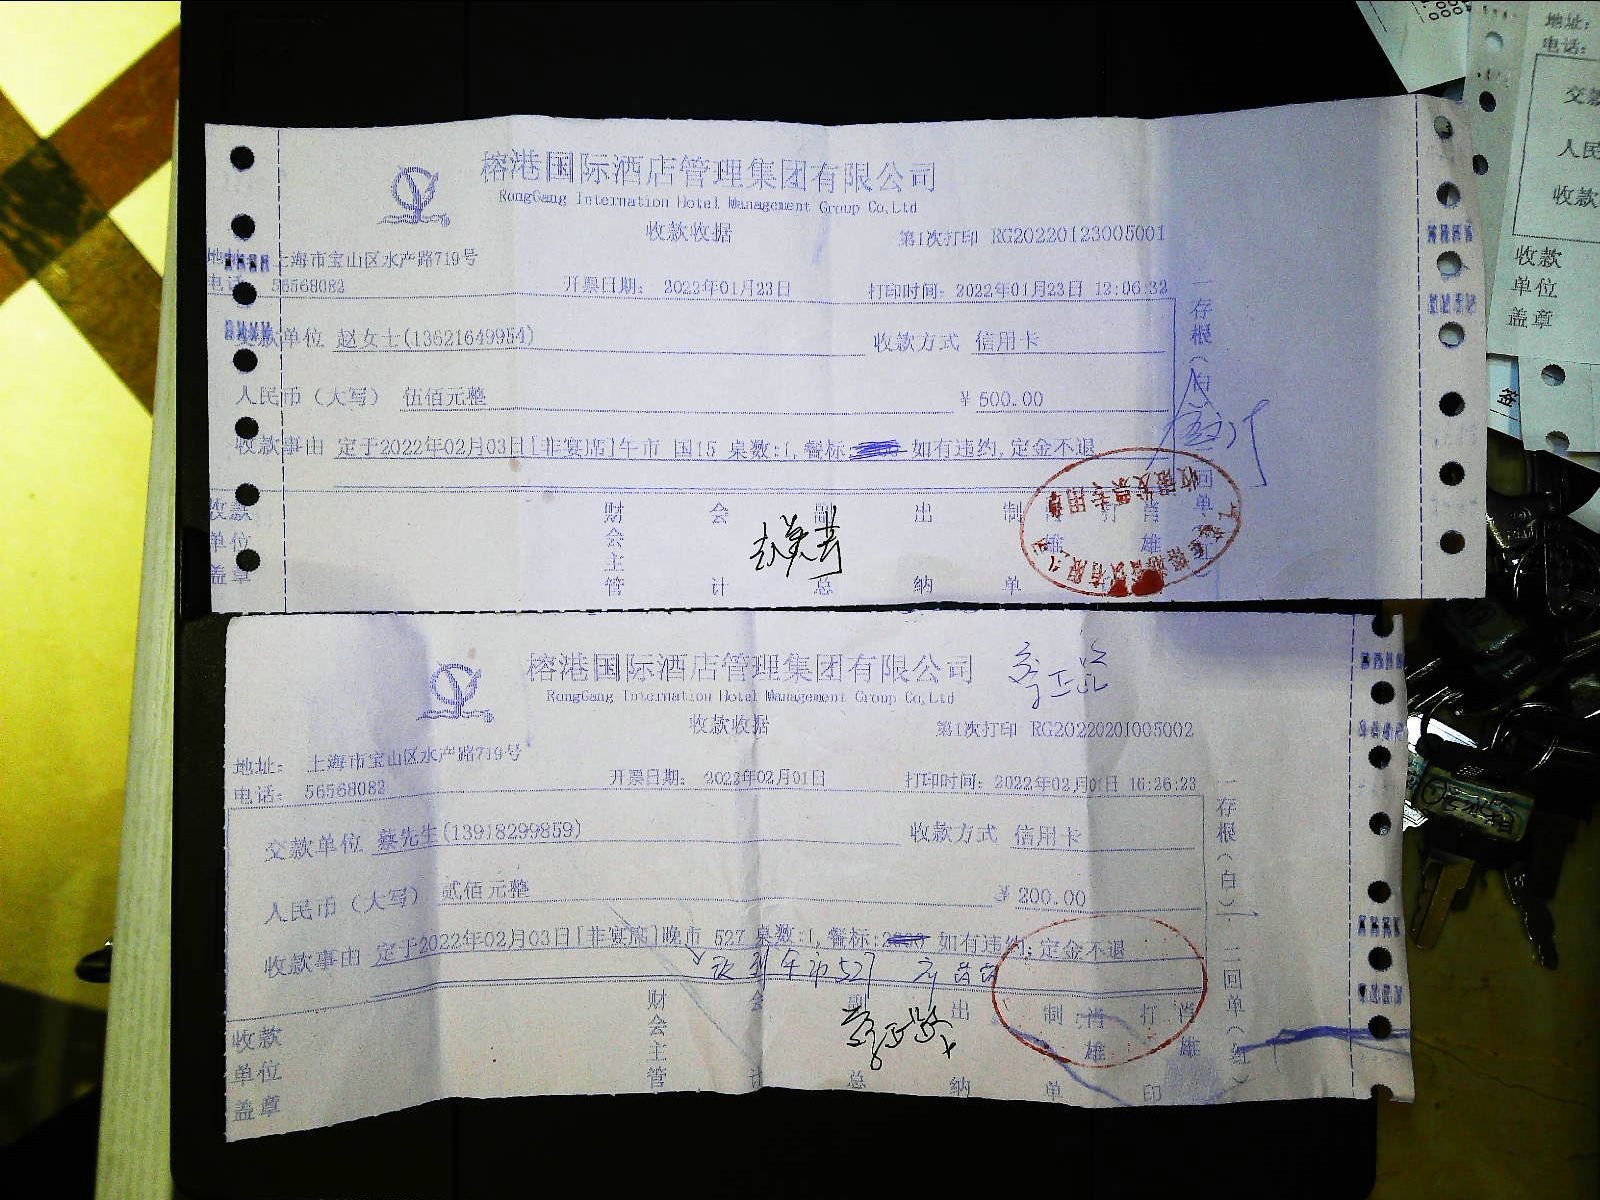 榕港国际酒店管理集团有限公司
RongGang Internation Hotel Management Group Co,Ltd
收款收据
第1次打印 RG20220123005001
上海市宝山区水产路719号
电话 56568082
开票日期： 2022年01月23日
打印时间：2022年01月23日 12:06:32
交款单位 赵女士(13621649954)
收款方式 信用卡
人民币（大写） 伍佰元整
￥500.00
收款事由 定于2022年02月03日[非宴席]午市 国15 桌数:1,餐标: 如有违约,定金不退
收款单位盖章
财会主管 会计 副总 出纳 制单 肖雄 打 肖雄
存根（白） 二回单（红）
榕港国际酒店管理集团有限公司
RongGang Internation Hotel Management Group Co,Ltd
收款收据
第1次打印 RG20220201005002
地址： 上海市宝山区水产路719号
电话： 56568082
开票日期： 2022年02月01日
打印时间：2022年02月01日 16:26:23
交款单位 蔡先生(13918299859)
收款方式 信用卡
人民币（大写） 贰佰元整
￥200.00
收款事由 定于2022年02月03日[非宴席]晚市 527 桌数:1,餐标: 如有违约,定金不退
改到午市527
收款单位盖章
财会主管 会计 副总 出纳 制单 肖雄 打印 肖雄
一存根（白） 二回单（红）
地址:
电话:
收款
收款单位盖章